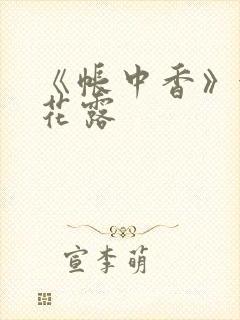 《帐中香》
花露
宣李萌